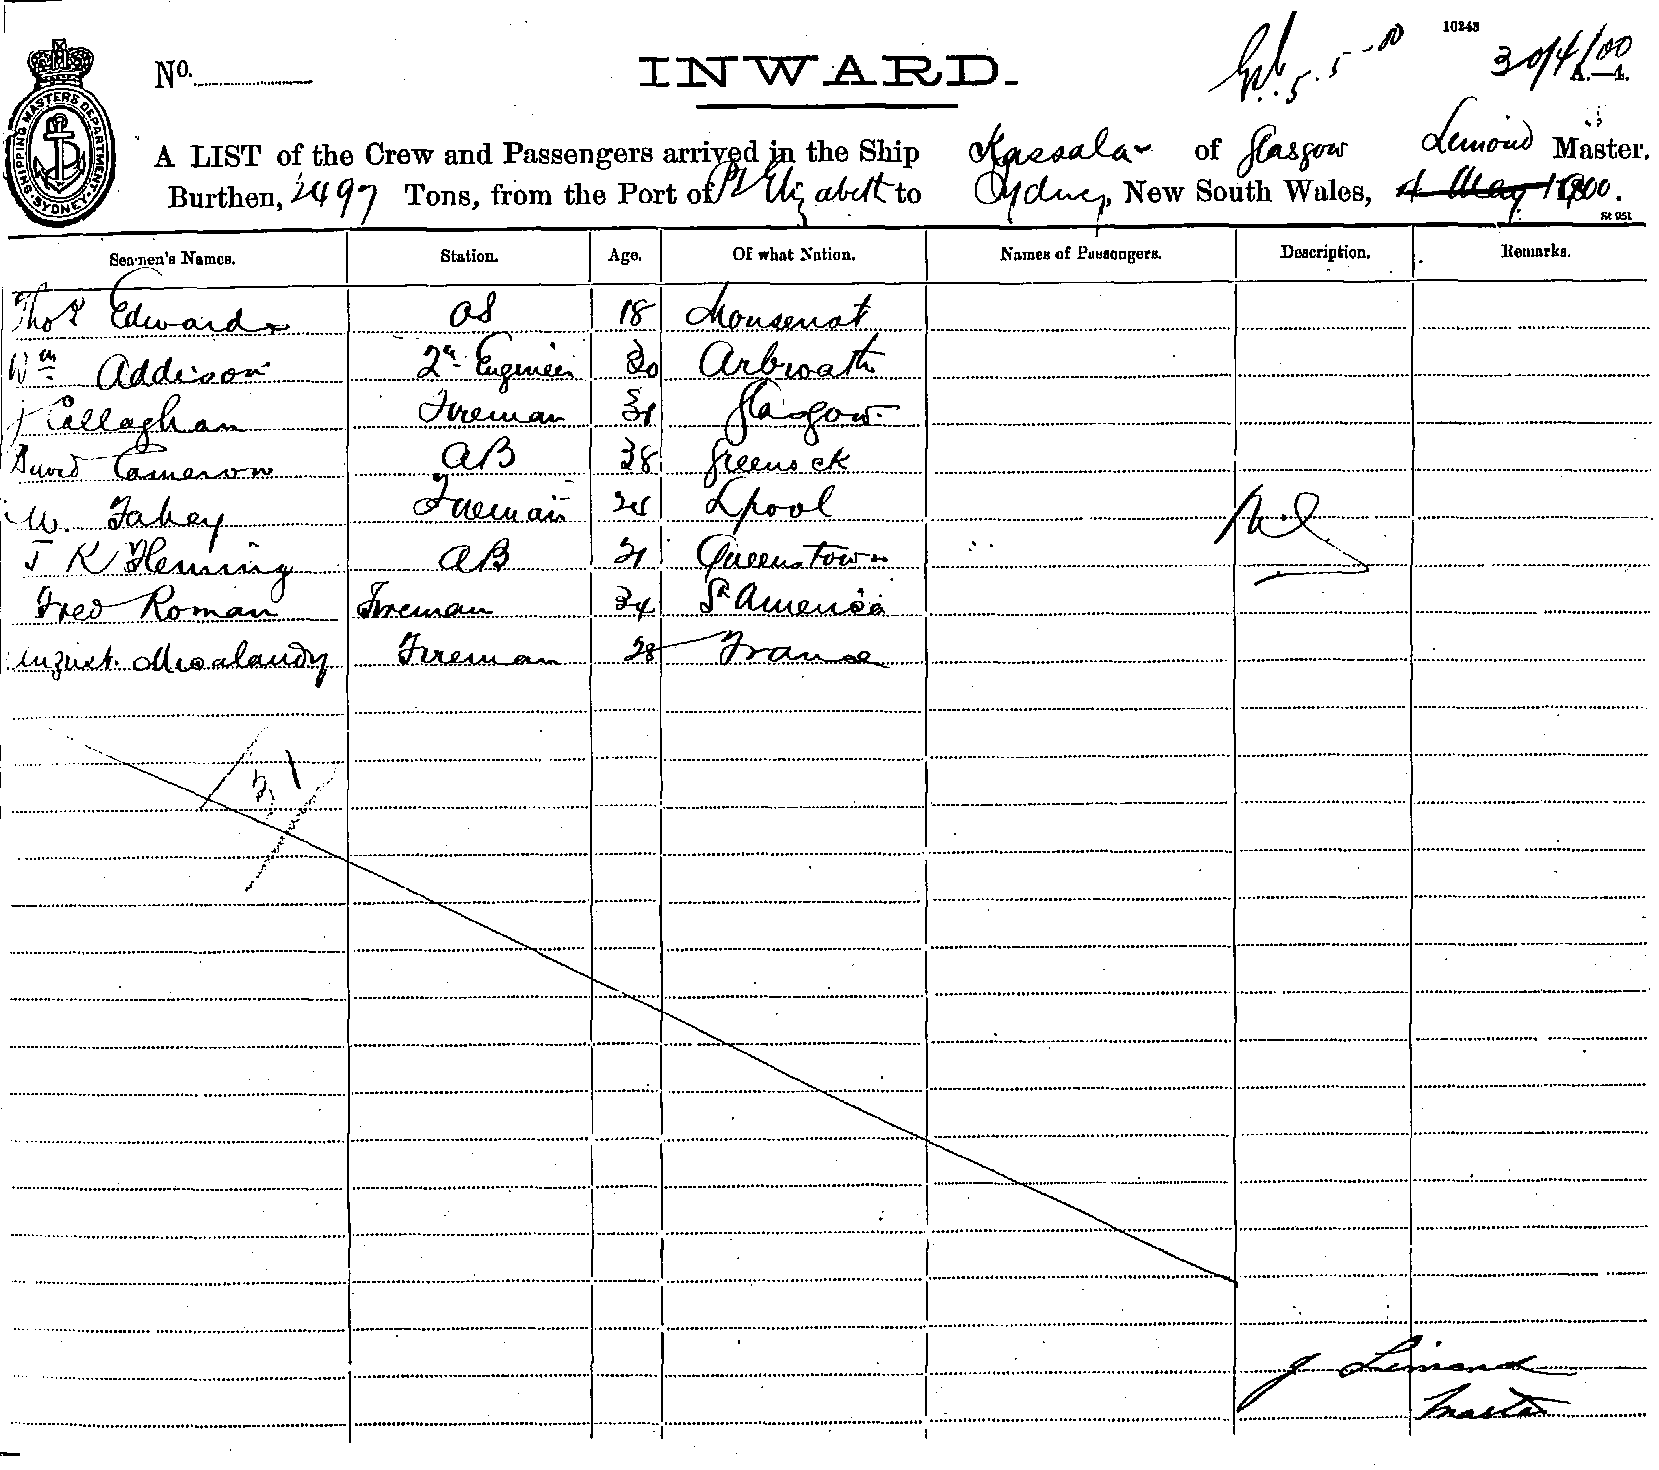 10243
5.5-00
30/4/00
A.—1.
No.
INWARD.
SHIPPING MASTERS DEPARTMENT SYDNEY
A LIST of the Crew and Passengers arrived in the Ship Kassala of Glasgow Limond Master.
Burthen, 2497 Tons, from the Port of Pt Elizabeth to Sydney, New South Wales, 4 May 1900.
St 951
Seamen's Names. Station. Age. Of what Nation. Names of Passengers. Description. Remarks.
Thos Edwards OS 18 Monserat
Wm Addison 2n Engineer 30 Arbroath
J Callaghan Fireman 31 Glasgow
David Cameron AB 38 Greenock
M. Fahey Fireman 24 Lpool
Nil
J K Fleming AB 21 Queenstown
Fred Roman Fireman 34 Sh America
August Fireman 28 France
31
J Limond
Master